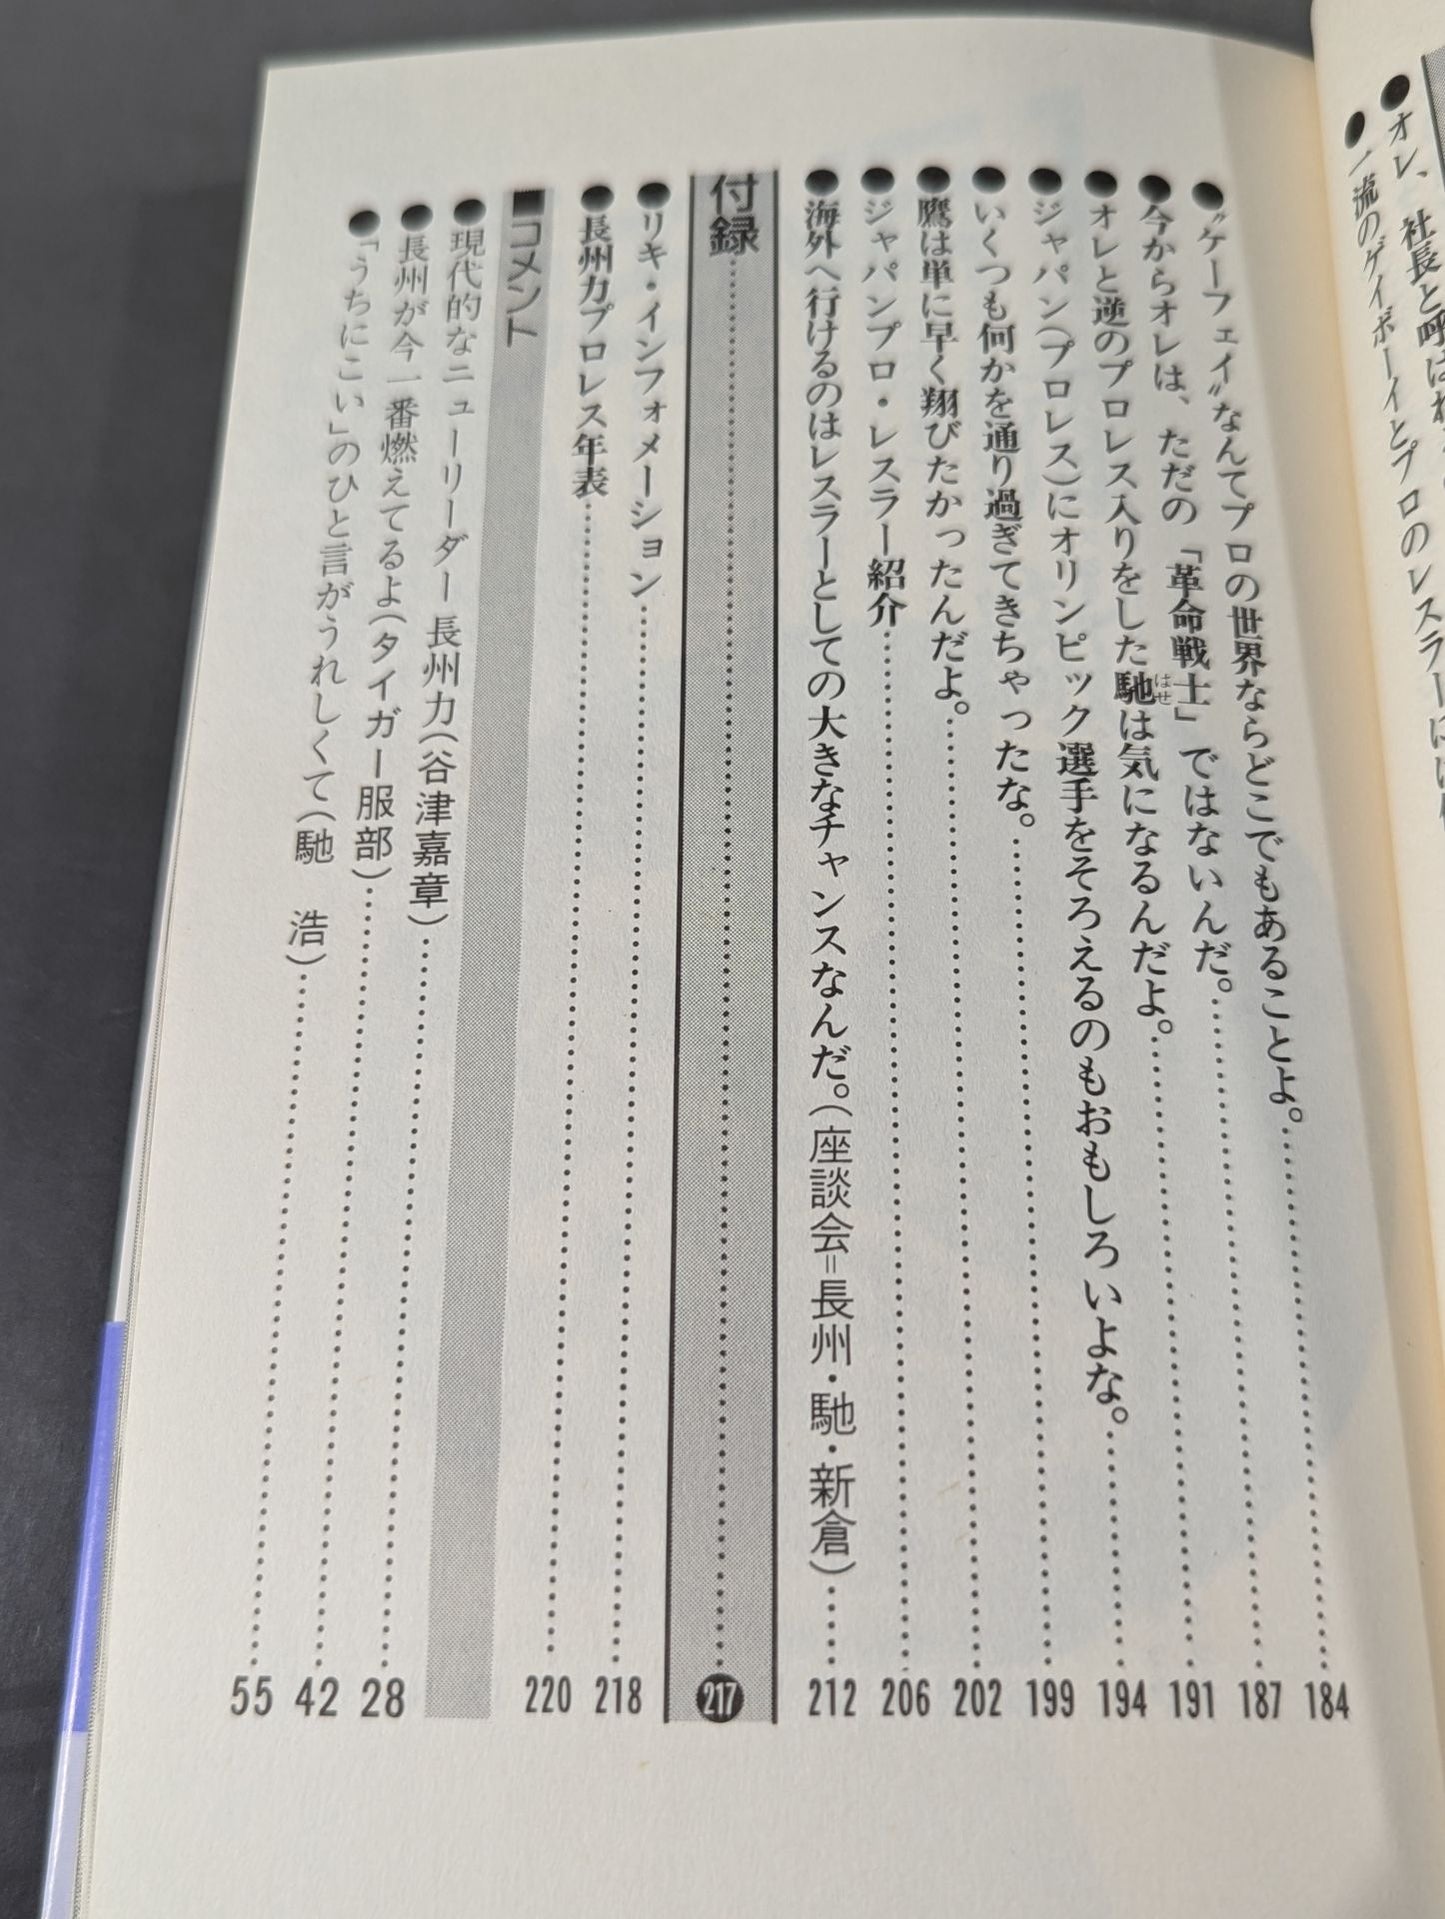 ●オレ、社長と呼ばれ
●一流のゲイボーイとプロのレスラーには
●〝ケーフェイ〟なんてプロの世界ならどこでもあることよ。……184
●今からオレは、ただの「革命戦士」ではないんだ。……187
●オレと逆のプロレス入りをした馳(はせ)は気になるんだよ。……191
●ジャパン(プロレス)にオリンピック選手をそろえるのもおもしろいよな。……194
●いくつも何かを通り過ぎてきちゃったな。……199
●鷹は単に早く翔びたかったんだよ。……202
●ジャパンプロ・レスラー紹介……206
●海外へ行けるのはレスラーとしての大きなチャンスなんだ。(座談会=長州・馳・新倉)……212
付録……217
●リキ・インフォメーション……218
●長州力プロレス年表……220
■コメント
●現代的なニューリーダー長州力(谷津嘉章)……28
●長州が今一番燃えてるよ(タイガー服部)……42
●「うちにこい」のひと言がうれしくて(馳　浩)……55